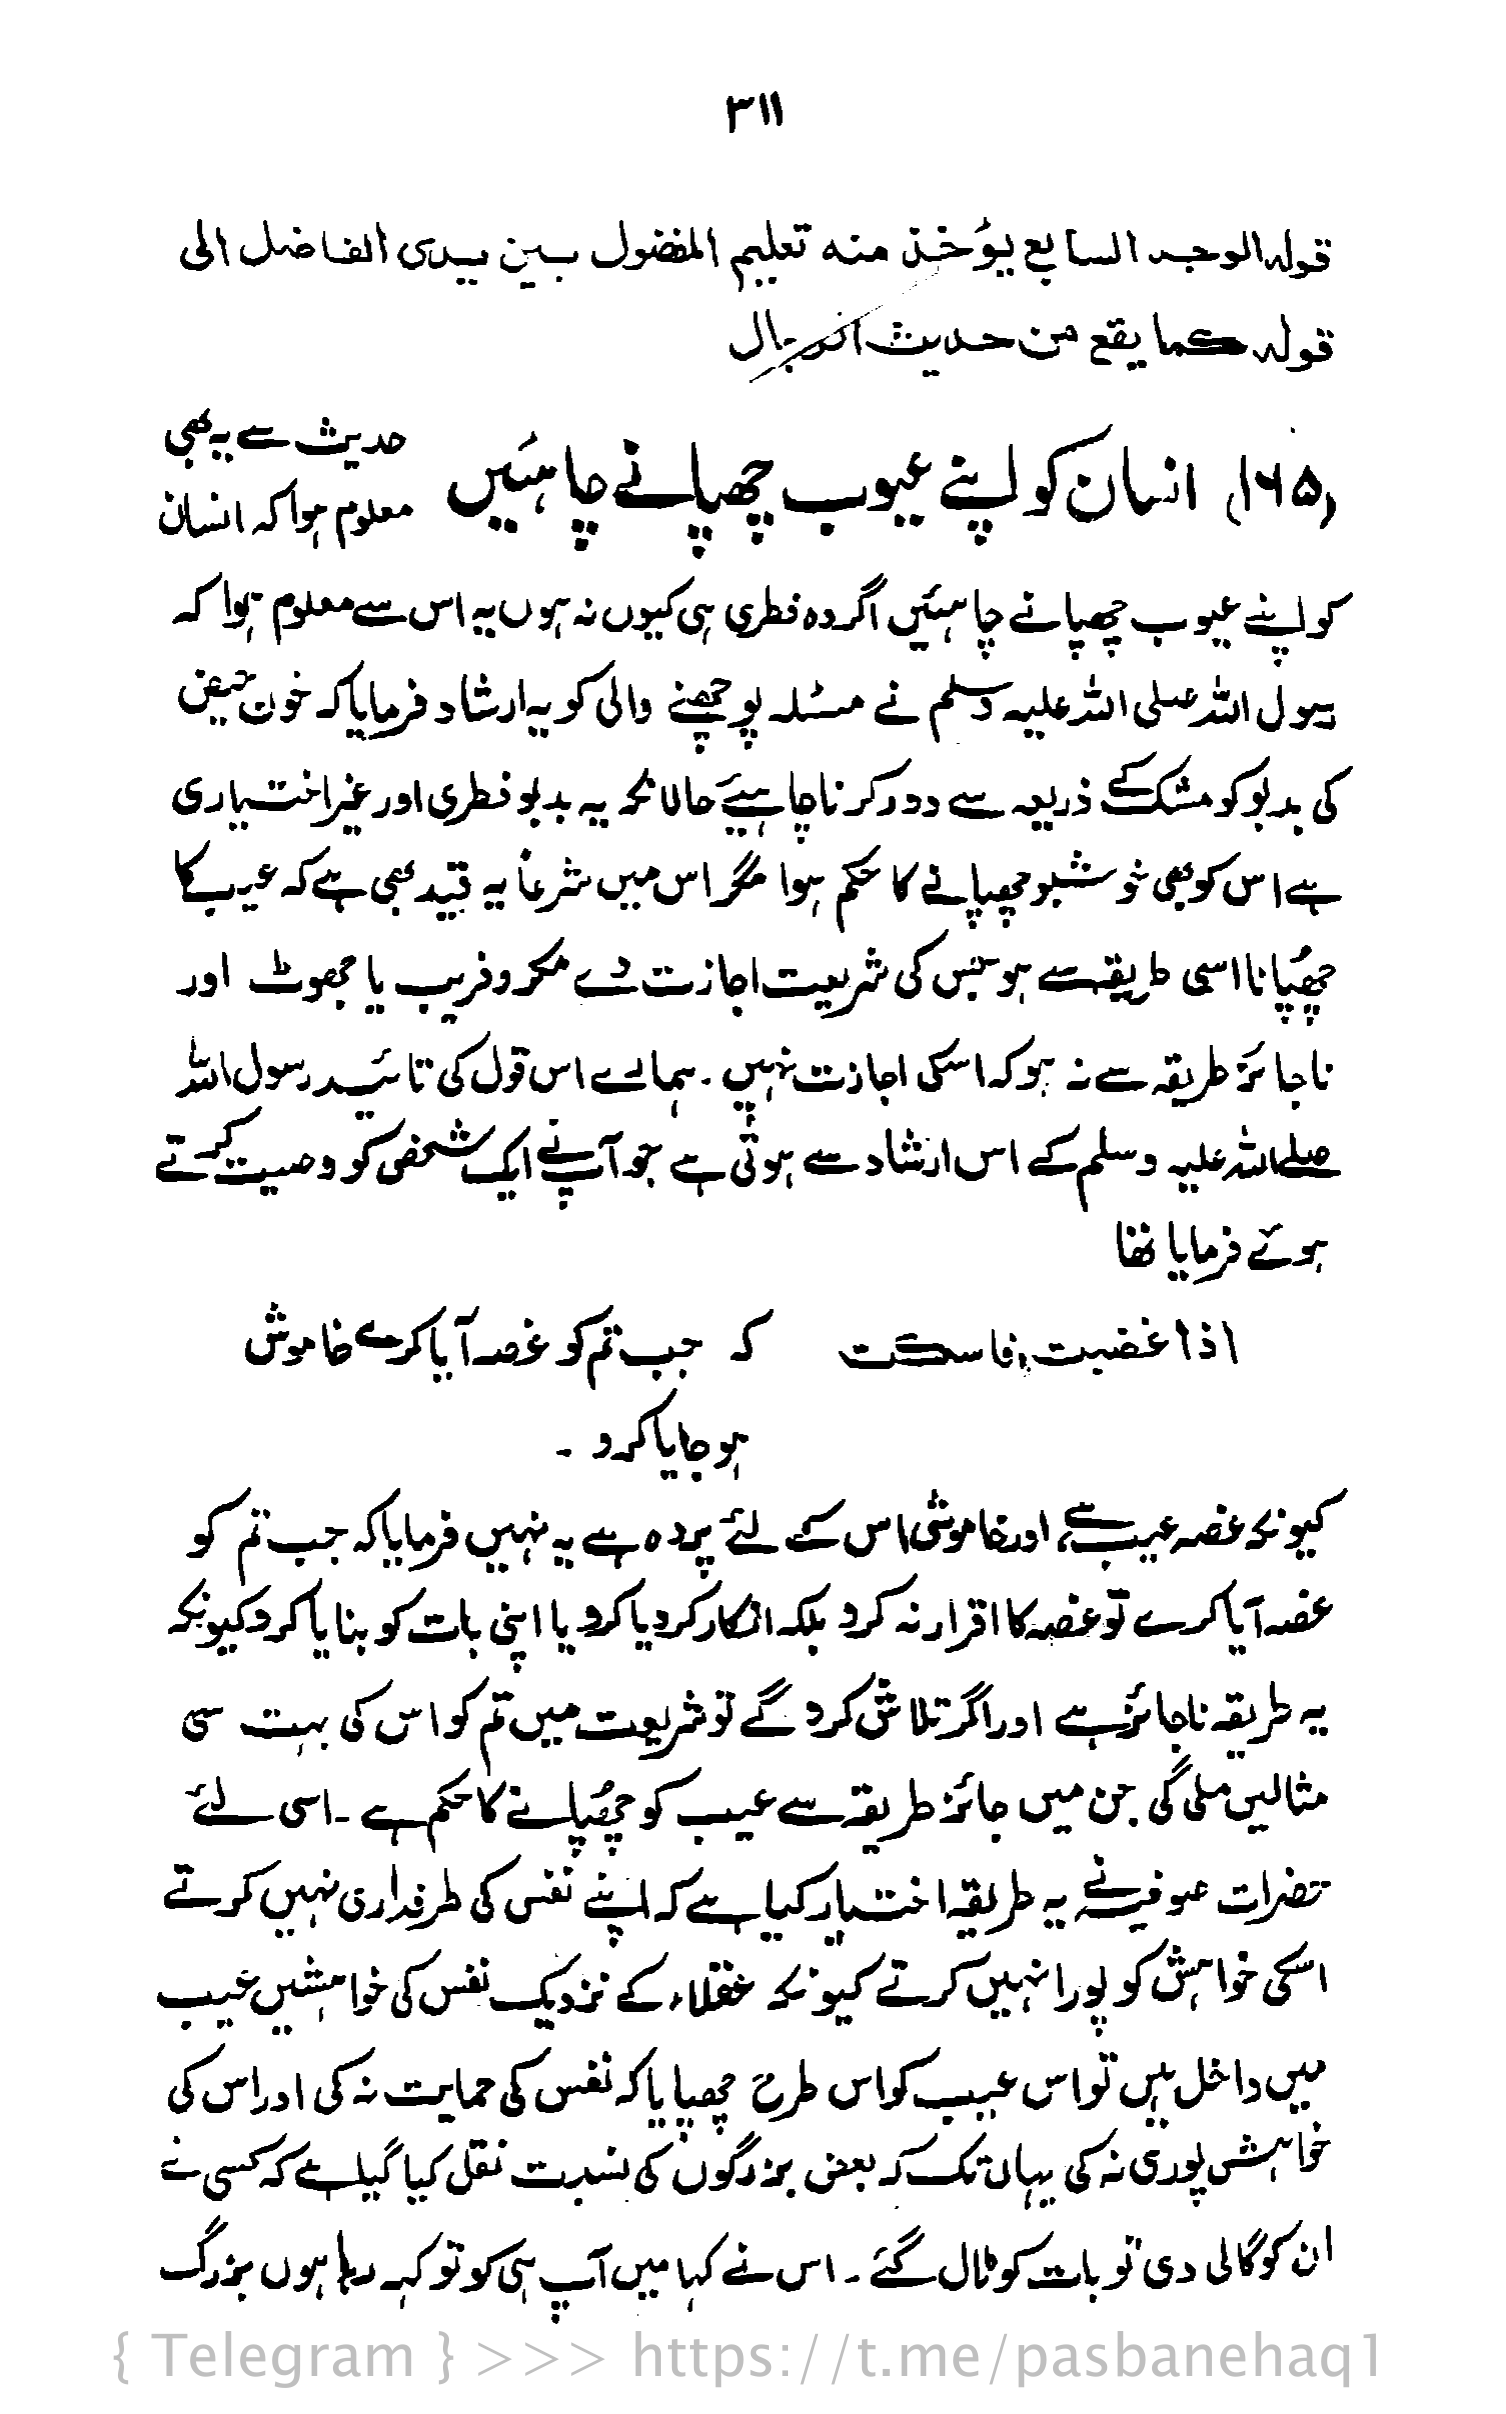 ۳۱۱
قولہ الوجہ السابع یؤخذ منہ تعلیم المفضول بین یدی الفاضل الی
قولہ کما یقع من حدیث الرجال
(۱۶۵) انسان کو اپنے عیوب چھپانے چاہئیں حدیث سے یہ بھی
معلوم ہوا کہ انسان
کو اپنے عیوب چھپانے چاہئیں اگر وہ فطری ہی کیوں نہ ہوں یہ اس سے معلوم ہوا کہ
رسول اللہ صلی اللہ علیہ وسلم نے مسئلہ پوچھنے والی کو یہ ارشاد فرمایا کہ خون حیض
کی بدبو کو مشک کے ذریعہ سے دور کرنا چاہیئے حالانکہ یہ بدبو فطری اور غیر اختیاری
ہے اس کو بھی خوشبو چھپانے کا حکم ہوا مگر اس میں شرعاً یہ قید بھی ہے کہ عیب کا
چھپانا اسی طریقہ سے ہو جس کی شریعت اجازت دے مکر و فریب یا جھوٹ اور
ناجائز طریقہ سے نہ ہو کہ اسکی اجازت نہیں ۔ ہمارے اس قول کی تائید رسول اللہ
صلے اللہ علیہ وسلم کے اس ارشاد سے ہوتی ہے جو آپ نے ایک شخص کو وصیت کرتے
ہوئے فرمایا تھا
اذا غضبت فاسکت کہ جب تم کو غصہ آیا کرے خاموش
ہو جایا کرو ۔
کیونکہ غصہ عیب ہے، اور خاموشی اس کے لئے پردہ ہے یہ نہیں فرمایا کہ جب تم کو
غصہ آیا کرے تو غصہ کا اقرار نہ کرو بلکہ انکار کر دیا کرو یا اپنی بات کو بنایا کرو کیونکہ
یہ طریقہ ناجائز ہے اور اگر تلاش کرو گے تو شریعت میں تم کو اس کی بہت سی
مثالیں ملی گی جن میں جائز طریقہ سے عیب کو چھپانے کا حکم ہے ۔ اسی لئے
حضرات صوفیہ نے یہ طریقہ اختیار کیا ہے کہ اپنے نفس کی طرفداری نہیں کرتے
اسکی خواہش کو پورا نہیں کرتے کیونکہ عقلاء کے نزدیک نفس کی خواہشیں عیب
میں داخل ہیں تو اس عیب کو اس طرح چھپایا کہ نفس کی حمایت نہ کی اور اس کی
خواہش پوری نہ کی یہاں تک کہ بعض بزرگوں کی نسبت نقل کیا گیا ہے کہ کسی نے
ان کو گالی دی تو بات کو ٹال گئے ۔ اس نے کہا میں آپ ہی کو تو کہہ رہا ہوں بزرگ
{ Telegram } >>> https://t.me/pasbanehaq1